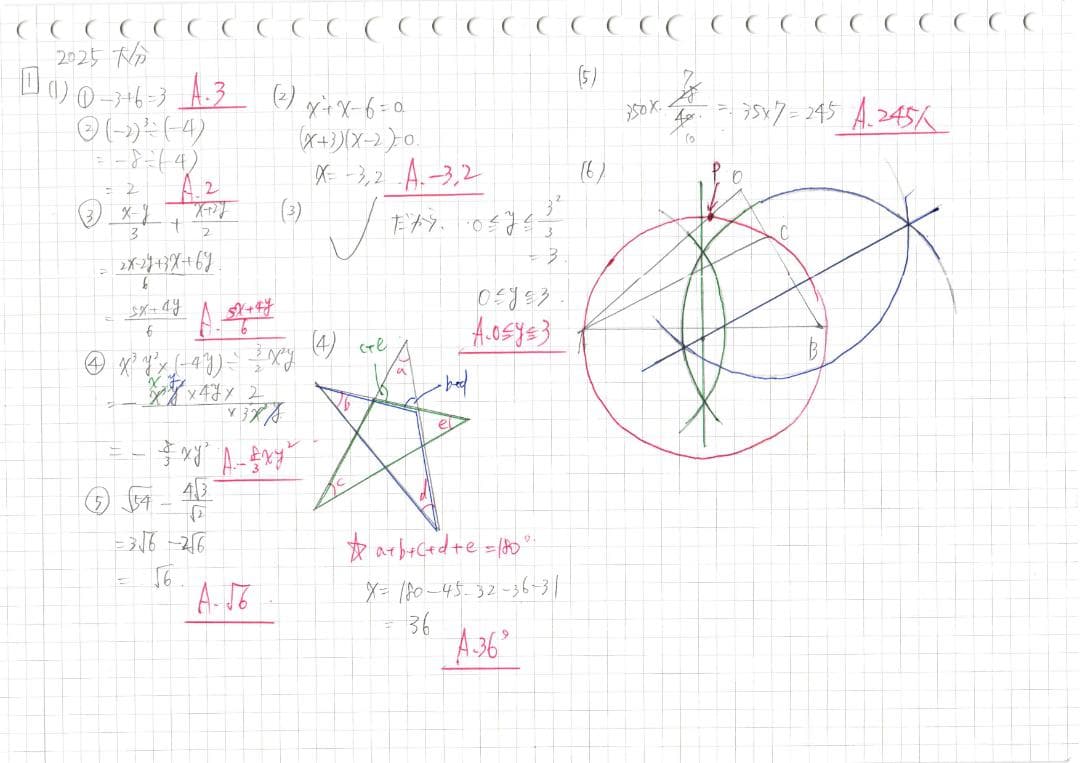 2025 大分
1
(1) ① -3+6=3 A.3
② (-2)³÷(-4)
= -8÷(-4)
= 2 A.2
③ x-y/3 + x+2y/2
= 2x-2y+3x+6y/6
= 5x+4y/6 A. 5x+4y/6
④ x³y²×(-4y)÷3/2x²y
= - x³y²×4y×2/×3x²y
x y
= -8/3xy² A.-8/3xy²
⑤ √54 - 4√3/√2
= 3√6 - 2√6
= √6 A.√6
(2) x²+x-6=0
(x+3)(x-2)=0
x=-3,2 A.-3,2
(3) だから 0≦y≦3²/3
= 3
0≦y≦3
A.0≦y≦3
(4)
c+e
a
b+d
b
e
c
d
☆ a+b+c+d+e=180°
x=180-45-32-36-31
= 36
A.36°
(5) 350× 28/40 = 35×7=245 A.245人
7
10
(6)
P
O
C
B